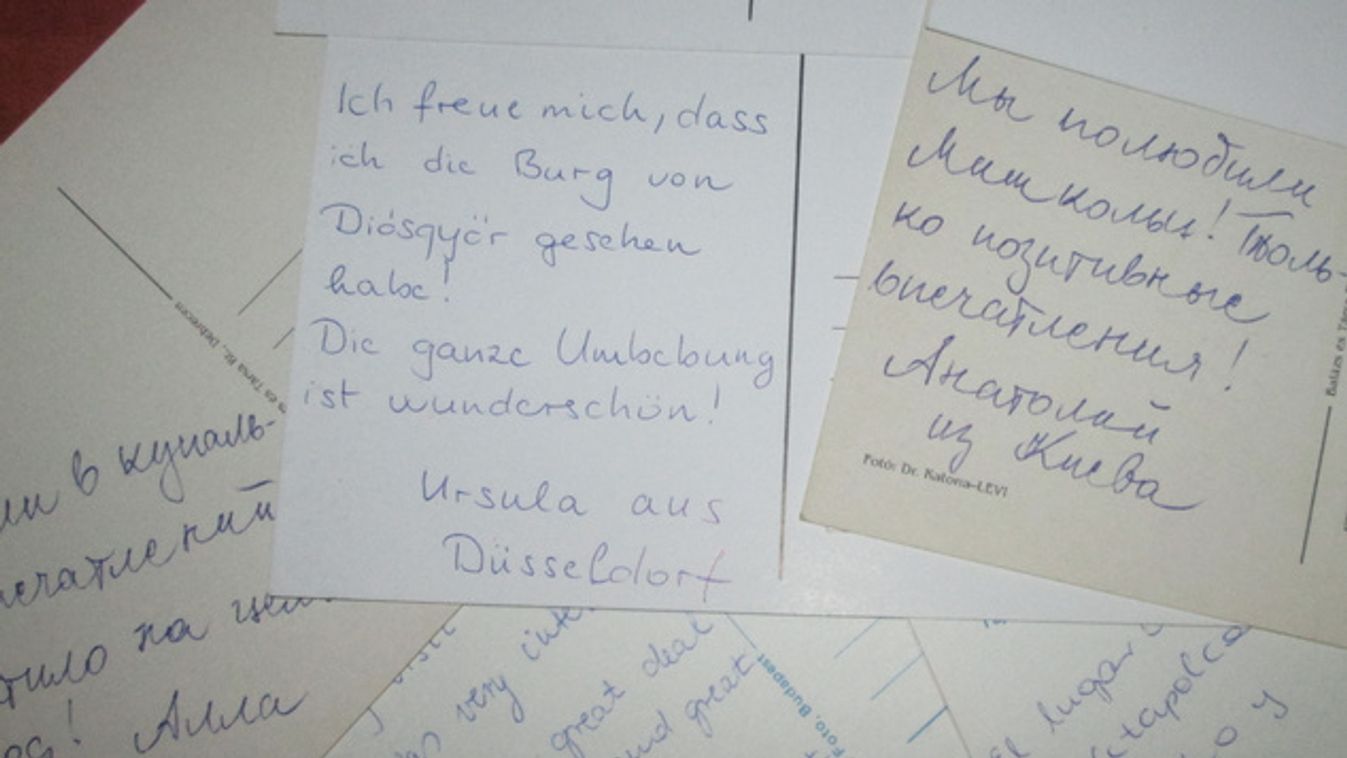 Ich freue mich, dass
ich die Burg von
Diósgyör gesehen
habe!
Die ganze Umbebung
ist wunderschön!
Ursula aus
Düsseldorf
Мы полюбили
Мишкольц! Толь-
ко позитивные
впечатления!
Анатолий
из Киева
Fotó: Dr. Katona-LEVI
Balázs és Társa
és Társa Kt., Debrecen
в купаль-
на
Алла
very
great deal
and great
Foto, Budapest
lugar
y